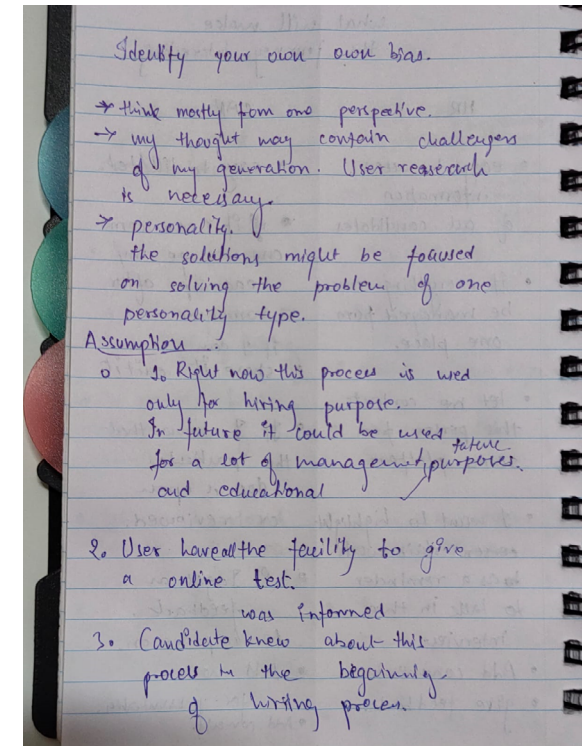 Identify your own own bias.
→ think mostly from one perspective.
→ my thought may contain challenges
of my generation. User reaserch
is necessary.
→ personality.
the solutions might be focused
on solving the problem of one
personality type.
Assumption :
1. Right now this process is used
only for hiring purpose.
In future it could be used
future
for a lot of management, purposes.
and educational
2. User have all the facility to give
a online test.
was informed
3. Candidate knew about this
process in the begainning
of hiriing process.